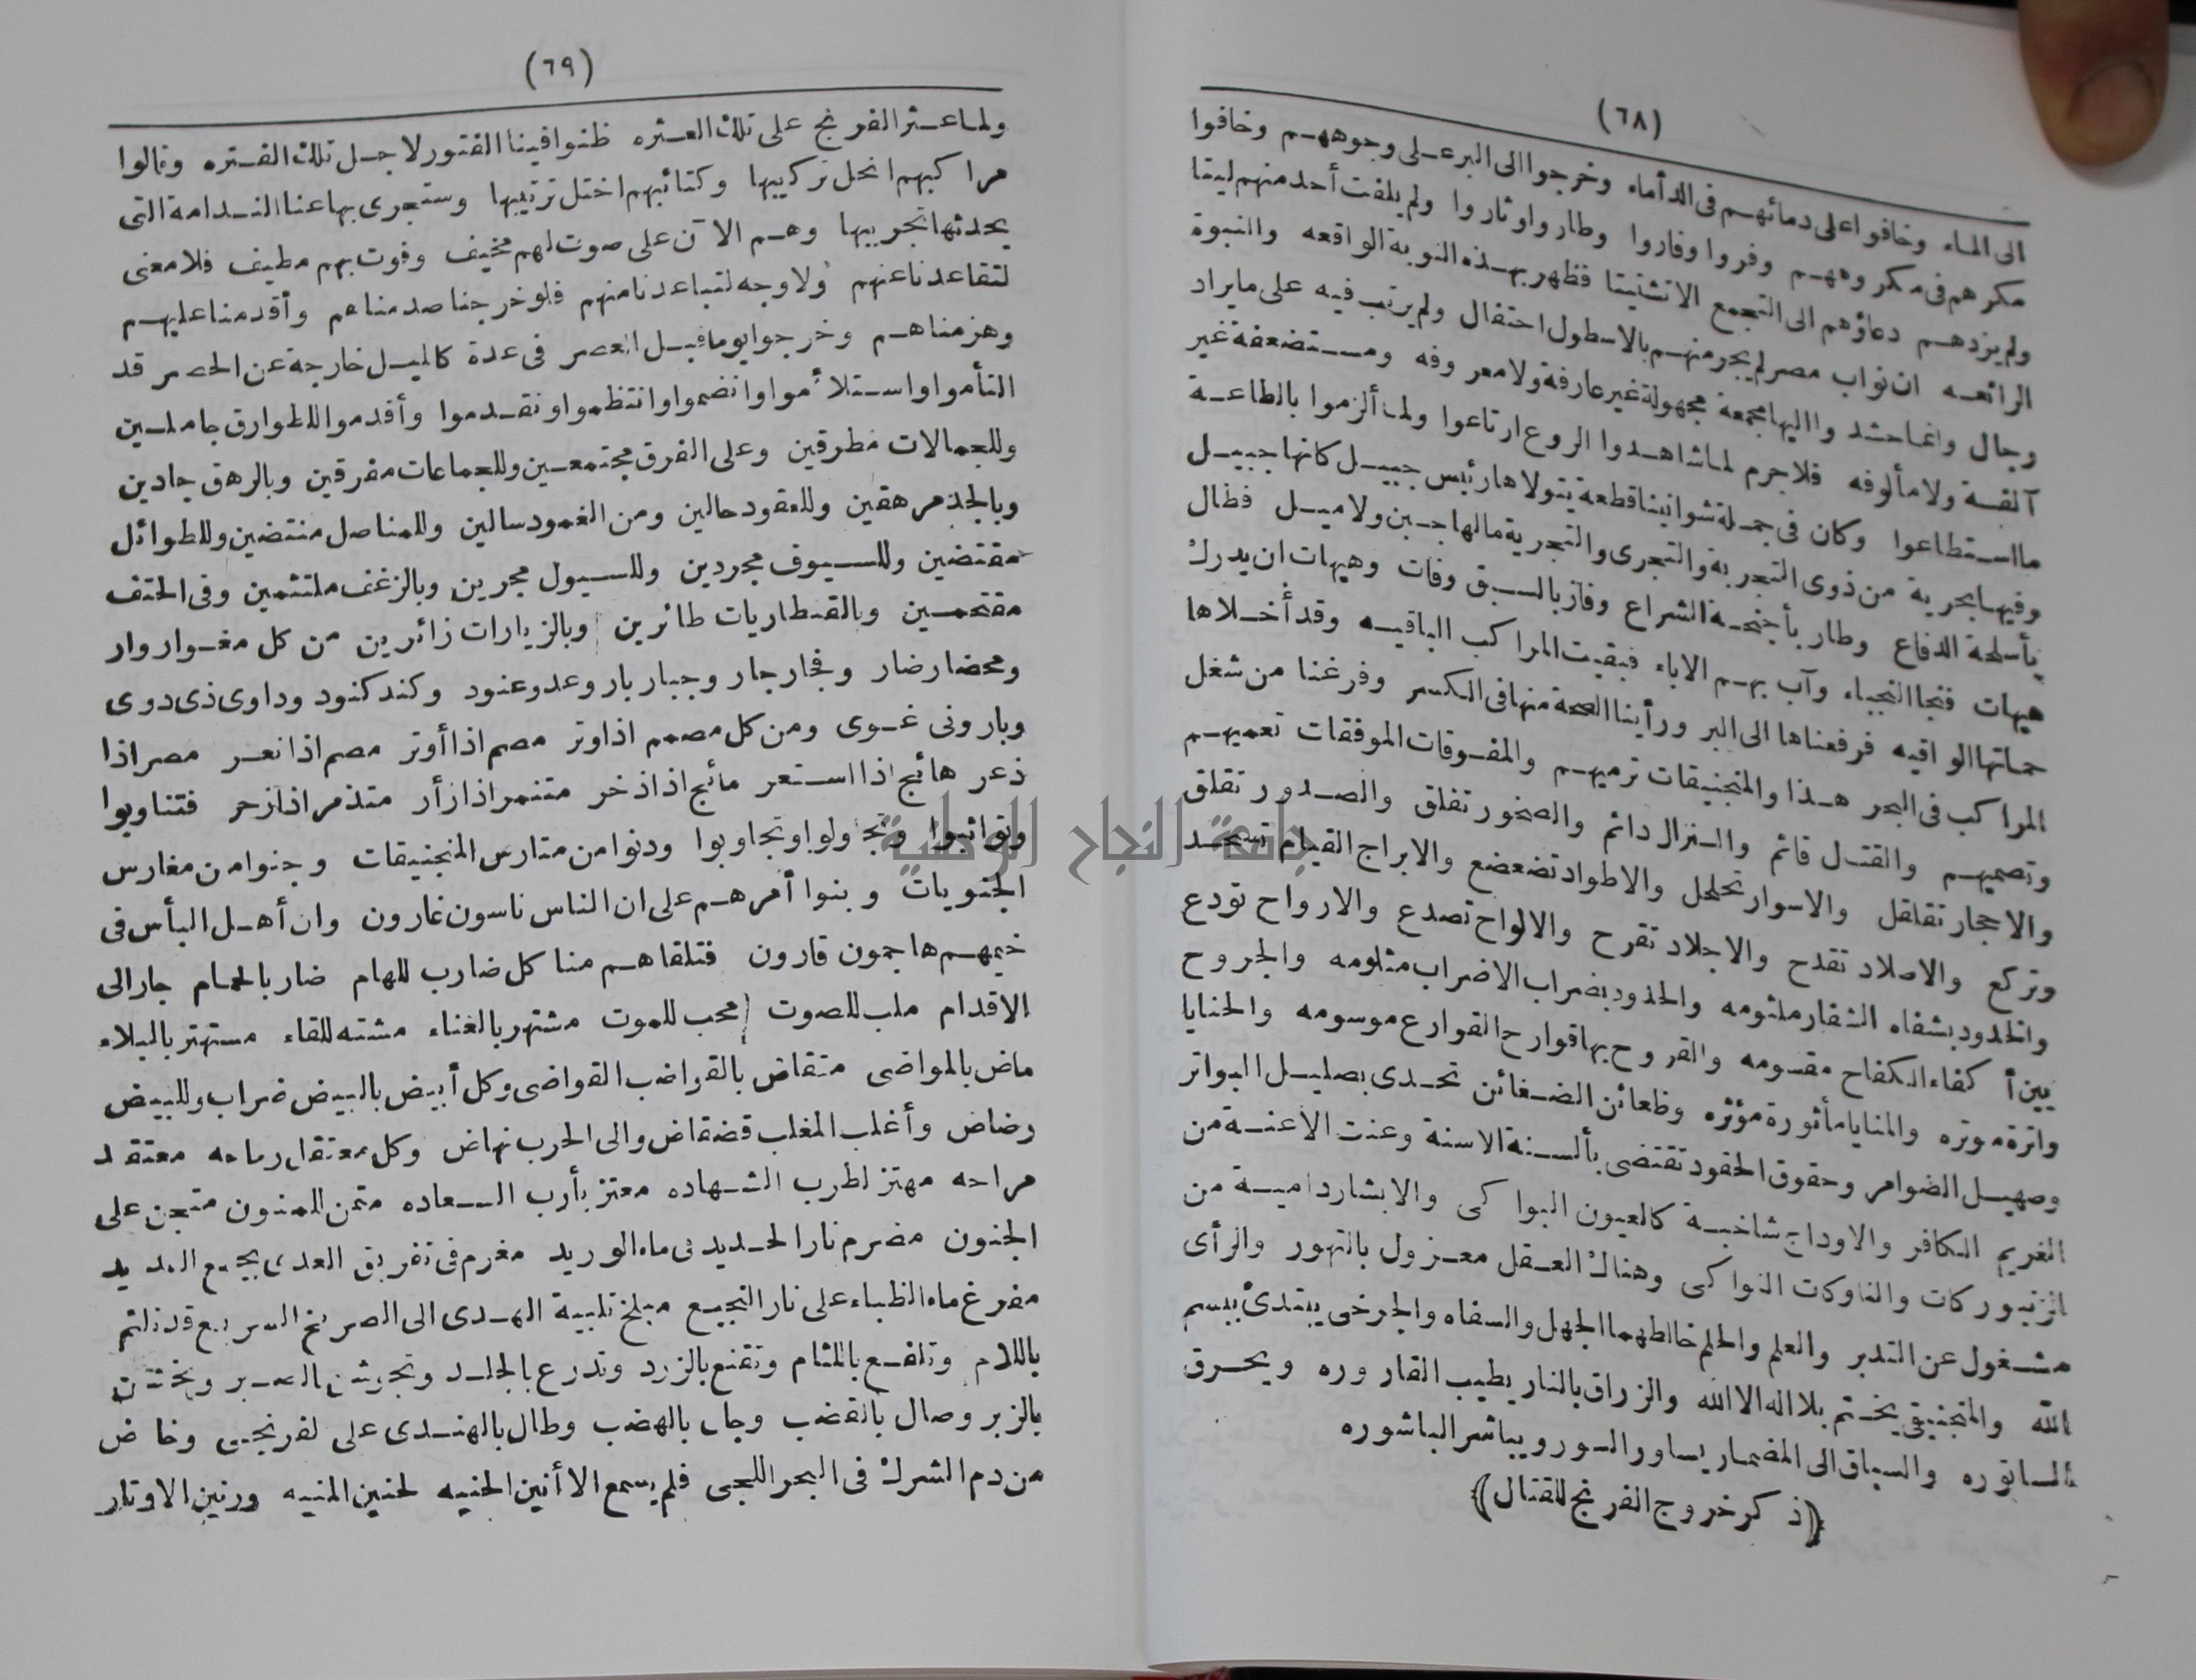 (٦٨)
الى الماء وخافوا على دمائهم فى الدأماء وخرجوا الى البر على وجوههم وخافوا
مكرهم فى مكروههم وفروا وفاروا وطاروا وثاروا ولم يلفت أحد منهم ليتا
ولم يزدهم دعاؤهم الى التجمع الا تشتيتا فظهر بهذه النوبة الواقعه والنبوة
الرائعه ان نواب مصر لم يجر منهم بالاسطول احتفال ولم يرتب فيه على ما يراد
رجال وانما حشدوا اليها مجمعة مجهولة غير عارفة ولا معروفه ومستضعفة غير
آلفة ولا مألوفه فلا جرم لما شاهدوا الروع ارتاعوا ولما ألزموا بالطاعة
ما استطاعوا وكان فى جملة شوانينا قطعة يتولاها رئيس جبيل كانها جبيل
وفيها بحرية من ذوى التجربة والتجرى والتجرية مالها جبن ولا ميل فطال
بأسلحة الدفاع وطار بأجنحة الشراع وفاز بالسبق وفات وهيهات ان يدرك
هيهات فنجا النجباء وآب بهم الاباء فبقيت المراكب الباقيه وقد أخلاها
حماتها الواقيه فرفعناها الى البر ورأينا الصحة منها فى الكسر وفرغنا من شغل
المراكب فى البحر هذا والمنجنيقات ترميهم والمفوقات الموفقات تعميهم
وتصميهم والقتل قائم والنزال دائم والصخور تفلق والصدور تقلق
والاحجار تقلقل والاسوار تحلحل والاطواد تضعضع والابراج القيام تسجد
وتركع والاصلاد تقدح والاجلاد تقرح والالواح تصدع والارواح تودع
والخدود بشفاه الشفار ملثومه والحدود بضراب الاضراب مثلومه والجروح
بين أكفاء الكفاح مقسومه والقروح بها قوارح القوارع موسومه والحنايا
واترة موتره والمنايا مأثورة مؤثره وظعائن الضغائن تحدى بصليل البواتر
وصهيل الضوامر وحقوق الحقود تقتضى بألسنة الاسنة وعنت الأعنة من
الغريم الكافر والاوداج شاخبة كالعيون البواكى والابشار دامية من
الزنبوركات والناوكات النواكى وهناك العقل معزول بالتهور والرأى
مشغول عن التدبر والعلم والحلم خالطهما الجهل والسفاه والجرخى يبتدئ ببسم
الله والمنجنيقى يختم بلا اله الا الله والزراق بالنار يطيب القاروره ويحرق
الساتوره والسباق الى المضمار يساور السور ويباشر الباشوره
﴿ذكر خروج الفرنج للقتال﴾
(٦٩)
ولما عثر الفرنج على تلك العثره ظنوا فينا الفتور لاجل تلك الفتره وقالوا
مراكبهم انحل تركيبها وكتائبهم اختل ترتيبها وستجرى بها عنا الندامة التى
يحدثها تجريبها وهم الآن على صوت لهم مخيف وفوت بهم مطيف فلا معنى
لتقاعدنا عنهم ولا وجه لتباعدنا منهم فلو خرجنا صدمناهم وأقدمنا عليهم
وهزمناهم وخرجوا يوما قبل العصر فى عدة كالميل خارجة عن الحصر قد
التأموا واستلأموا وانضموا وانتظموا وتقدموا وأقدموا للطوارق حاملين
وللجمالات مطرقين وعلى الفرق مجتمعين وللجماعات مفرقين وبالرهق جادين
وبالجد مرهقين وللعقود حالين ومن الغمود سالين وللمناصل منتضين وللطوائل
مقتضين وللسيوف مجردين وللسيول مجرين وبالزغف ملتثمين وفى الحتف
مقتحمين وبالقنطاريات طائرين وبالزيارات زائرين من كل مغوار وار
ومحضار ضار وفجار جار وجبار بار وعدو عنود وكند كنود وداوى ذى دوى
وبارونى غوى ومن كل مصمم اذا وتر مصم اذا أوتر مصم اذا نعر مصر اذا
ذعر هائج اذا استعر مائج اذا ذخر متنمر اذا زأر متذمر اذا زحر فتناوبوا
وتواثبوا وتجاولوا وتجاوبوا ودنوا من متارس المنجنيقات وجنوا من مغارس
الجنويات وبنوا أمرهم على ان الناس ناسون غارون وان أهل البأس فى
خيمهم هاجمون قارون فتلقاهم منا كل ضارب للهام ضار بالحمام جار الى
الاقدام ملب للصوت محب للموت مشتهر بالغناء مشته للقاء مستهتر بالبلاء
ماض بالمواضى متقاض بالقواضب القواضى وكل أبيض بالبيض ضراب وللبيض
رضاض وأغلب المغلب قضقاض والى الحرب نهاض وكل معتقل رماحه معتقد
مراحه مهتز لطرب الشهاده معتز بأرب السعاده متمن للمنون متجن على
الجنون مضرم نار الحديد فى ماء الوريد مغرم فى تفريق العدى بجمع العديد
مفرغ ماء الظباء على نار النجيع مبلغ تلبية الهدى الى الصريخ السريع قد تلثم
باللام وتلفع باللثام وتقنع بالزرد وتدرع بالجلد وتجوشن بالصبر وتخشن
بالزبر وصال بالقضب وجال بالهضب وطال بالهندى على الفرنجى وخاض
من دم الشرك فى البحر اللجى فلم يسمع الا أنين الحنيه لحنين المنيه ورنين الاوتار
جامعة النجاح الوطنية